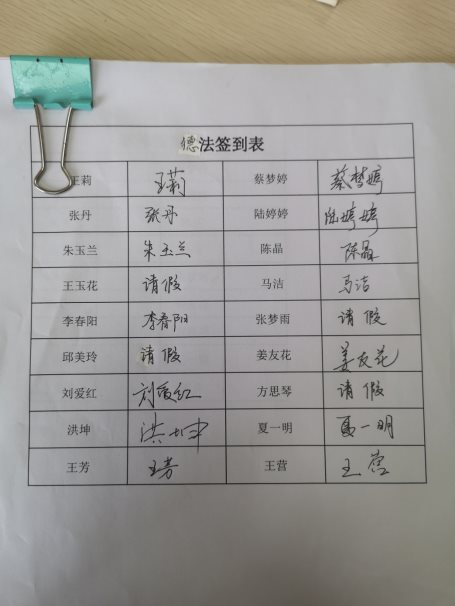 德法签到表
王莉 王莉 蔡梦婷 蔡梦婷
张丹 张丹 陆婷婷 陆婷婷
朱玉兰 朱玉兰 陈晶 陈晶
王玉花 请假 马洁 马洁
李春阳 李春阳 张梦雨 请假
邱美玲 请假 姜友花 姜友花
刘爱红 刘爱红 方思琴 请假
洪坤 洪坤 夏一明 夏一明
王芳 王芳 王营 王营